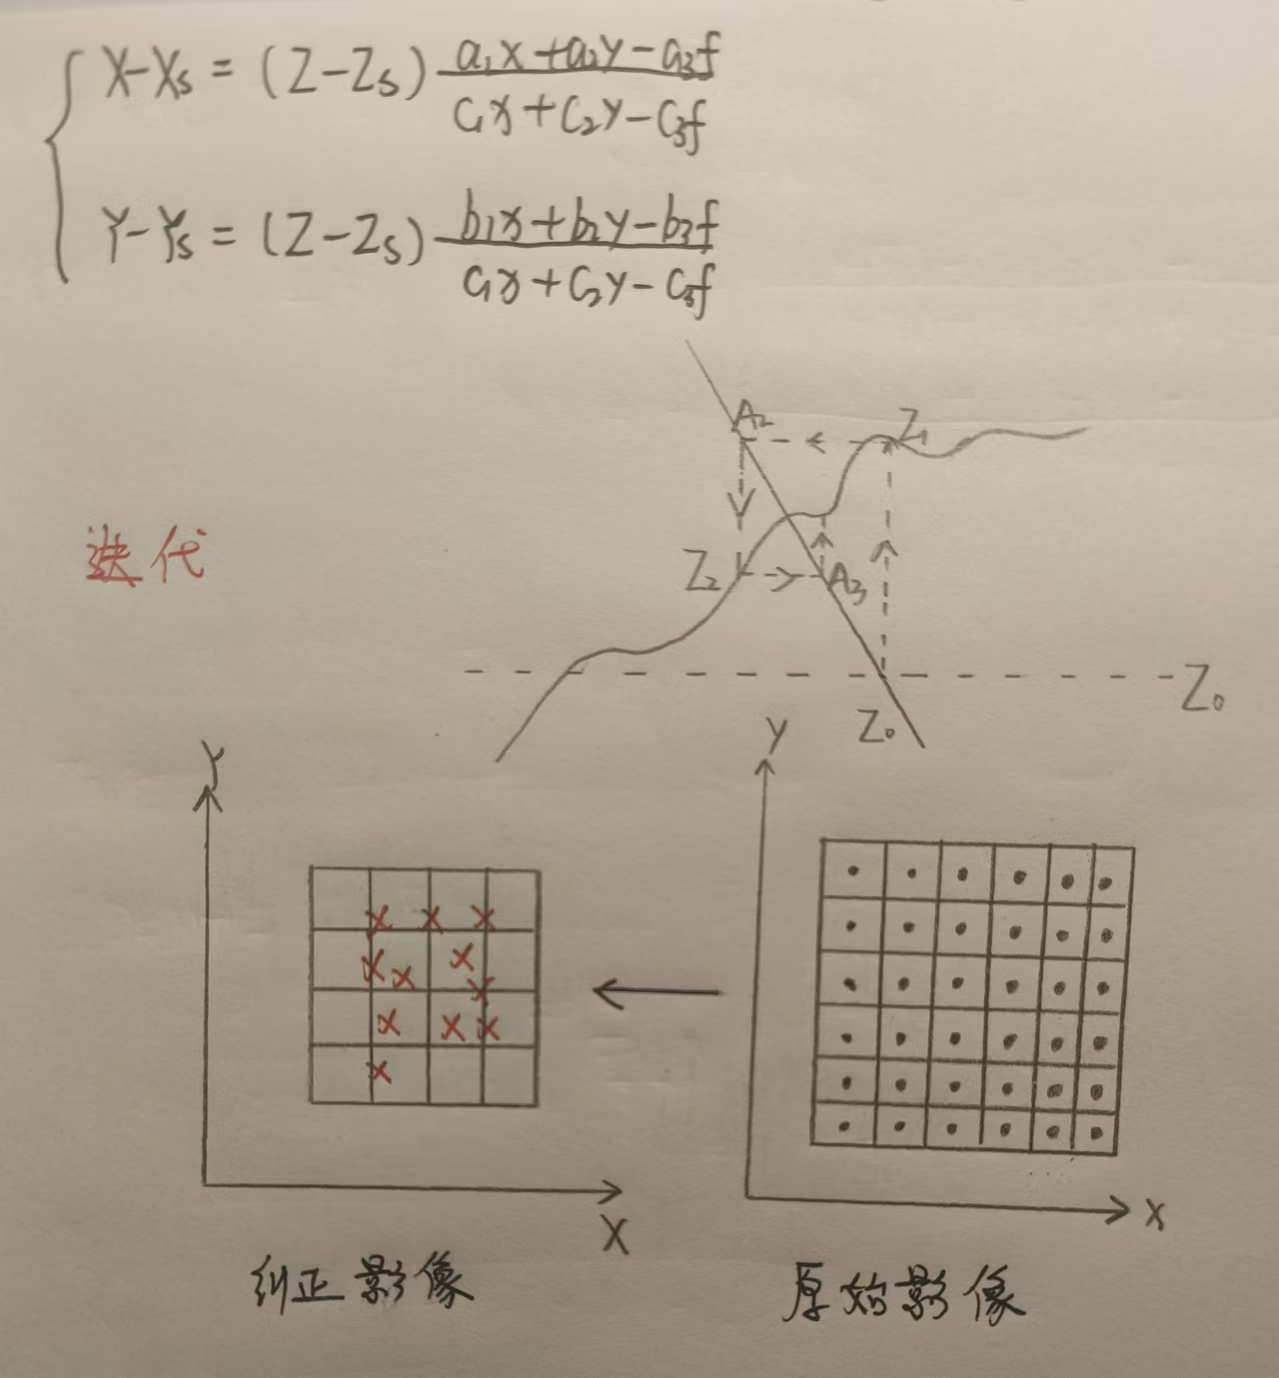 X-Xs = (Z-Zs) a₁x+a₂y-a₃f / c₁x+c₂y-c₃f
Y-Ys = (Z-Zs) b₁x+b₂y-b₃f / c₁x+c₂y-c₃f
A₂
Z₁
迭代
Z₂
A₃
Z₀
Z₀
Y
y
X
x
纠正影像
原始影像